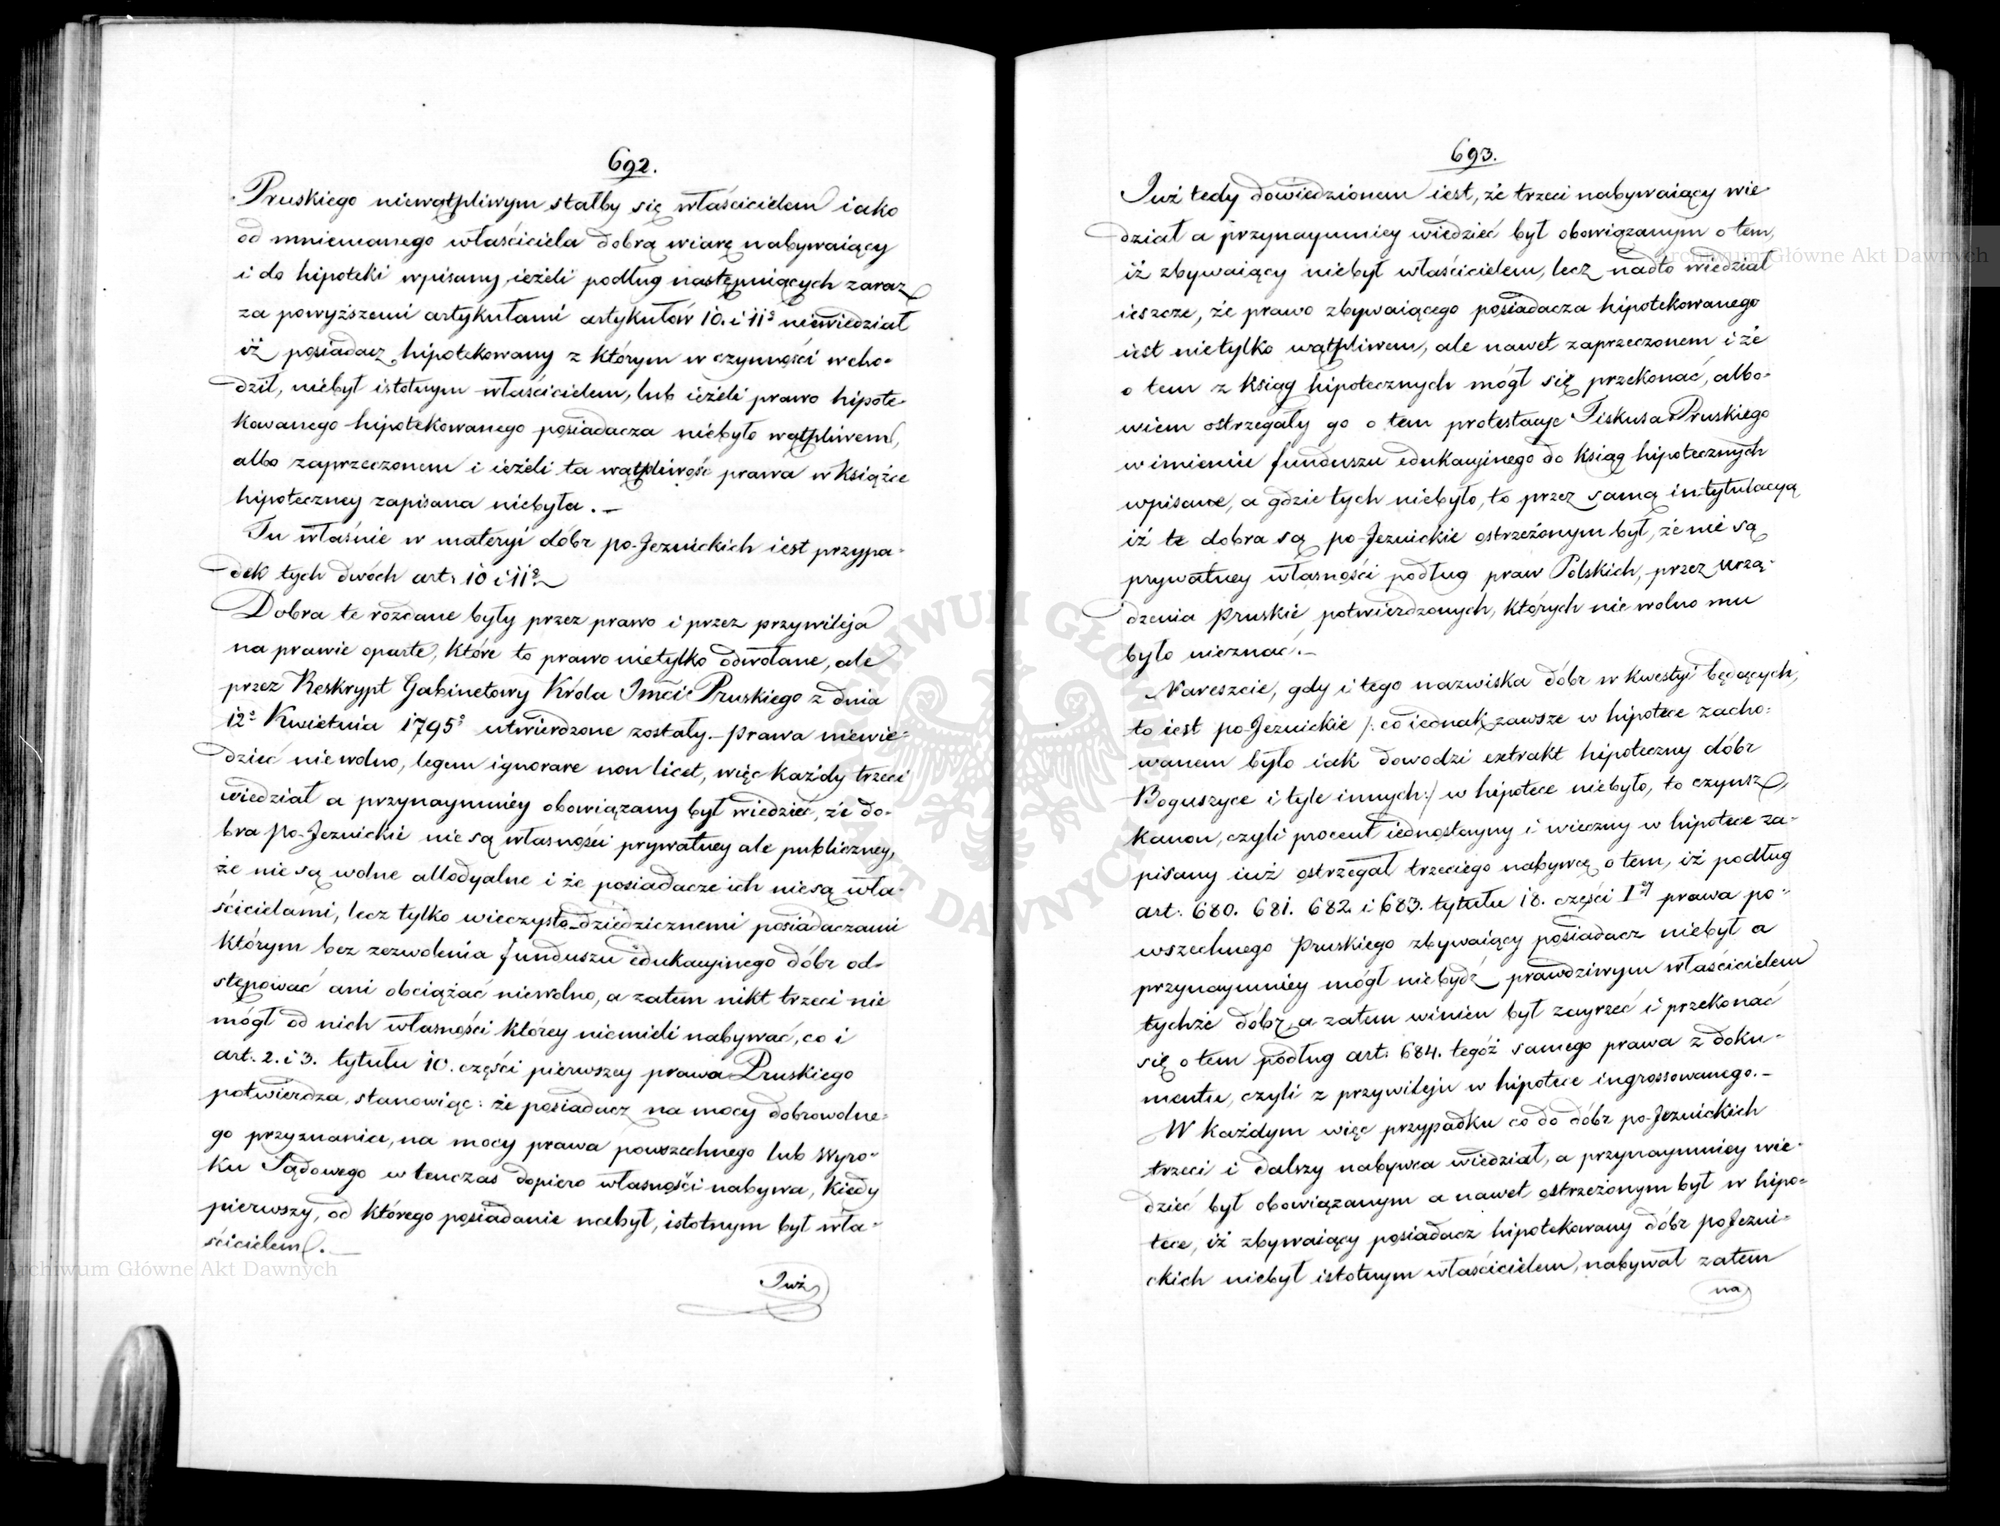 692.
Pruskiego niewątpliwym stałby się właścicielem iako
od mniemanego właściciela dobrą wiarę nabywaiący
i do hipoteki wpisany, ieżeli podług następuiących zaraz
za powyższemi artykułami artykułów 10. i 11º niewiedział
iż posiadacz hipotekowany z którym w czynności wcho-
dził, niebył istotnym właścicielem, lub ieżeli prawo hipote-
kowanego hipotekowanego posiadacza niebyło wątpliwem,
albo zaprzeczonem i ieżeli ta wątpliwość prawa w książce
hipoteczney zapisana niebyła. —
Tu właśnie w materyi dóbr po-Jezuickich iest przypa-
dek tych dwóch art: 10 i 11º
Dobra te rozdane były przez prawo i przez przywileja
na prawie oparte, które to prawo nietylko odwołane, ale
przez Reskrypt Gabinetowy Króla Jmci Pruskiego z dnia
12º Kwietnia 1795º utwierdzone zostały. — prawa niewie-
dzieć niewolno, legem ignorare non licet, więc każdy trzeci
wiedział a przynaymniéy obowiązany był wiedzieć, że do-
bra po-Jezuickie nie są własności prywatney ale publiczney,
że nie są wolne allodyalne i że posiadacze ich niesą wła-
ścicielami, lecz tylko wieczysto-dziedzicznemi posiadaczami
którym bez zezwolenia funduszu edukacyinego dóbr od-
stępować ani obciążać niewolno, a zatem nikt trzeci nie
mógł od nich własności którey niemieli nabywać, co i
art. 2. i 3. tytułu 10. części pierwszey prawa Pruskiego
potwierdza, stanowiąc: że posiadacz na mocy dobrowolne-
go przyznania, na mocy prawa powszechnego lub wyro-
ku Sądowego wtenczas dopiero własności nabywa, kiedy
pierwszy, od którego posiadanie nabył, istotnym był wła-
ścicielem. —
Już
693.
Już tedy dowiedzionem iest, że trzeci nabywaiący wie-
dział a przynaymniey wiedzieć był obowiązanym o tem,
iż zbywaiący niebył właścicielem, lecz nadto wiedział
ieszcze, że prawo zbywaiącego posiadacza hipotekowanego
iest nietylko wątpliwem, ale nawet zaprzeczonem i że
o tem z ksiąg hipotecznych mógł się przekonać, albo-
wiem ostrzegały go o tem protestacye Fiskusa Pruskiego
w imieniu funduszu edukacyinego do ksiąg hipotecznych
wpisane, a gdzie tych niebyło, to przez samą intytulacyą
iż te dobra są po-Jezuickie ostrzeżonym był, że nie są
prywatney własności podług praw Polskich, przez urzą-
dzenia pruskie potwierdzonych, których nie wolno mu
było nieznać. —
Nareszcie, gdy i tego nazwiska dóbr w kwestyi będących,
to iest po-Jezuickie /: co iednak zawsze w hipotece zacho-
wanem było iak dowodzi extrakt hipoteczny dóbr
Boguszyce i tyle innych :/ w hipotece niebyło, to czynsz,
kanon, czyli procent iednostayny i wieczny w hipotece za-
pisany już ostrzegał trzeciego nabywcę o tem, iż podług
art. 680. 681. 682. i 683. tytułu 18. części Iey prawa po-
wszechnego pruskiego zbywaiący posiadacz niebył a
przynaymniey mógł niebydź prawdziwym właścicielem
tychże dóbr, a zatem winien był zayrzeć i przekonać
się o tem podług art: 684. tegóż samego prawa z doku-
mentu, czyli z przywileju w hipotece ingrossowanego. —
W każdym więc przypadku co do dóbr po-Jezuickich
trzeci i dalszy nabywca wiedział, a przynaymniey wie-
dzieć był obowiązanym a nawet ostrzeżonym był w hipo-
tece, iż zbywaiący posiadacz hipotekowany dóbr poJezui-
ckich niebył istotnym właścicielem, nabywał zatem
na
Archiwum Główne Akt Dawnych
Archiwum Główne Akt Dawnych
ARCHIWUM GŁÓWNE AKT DAWNYCH